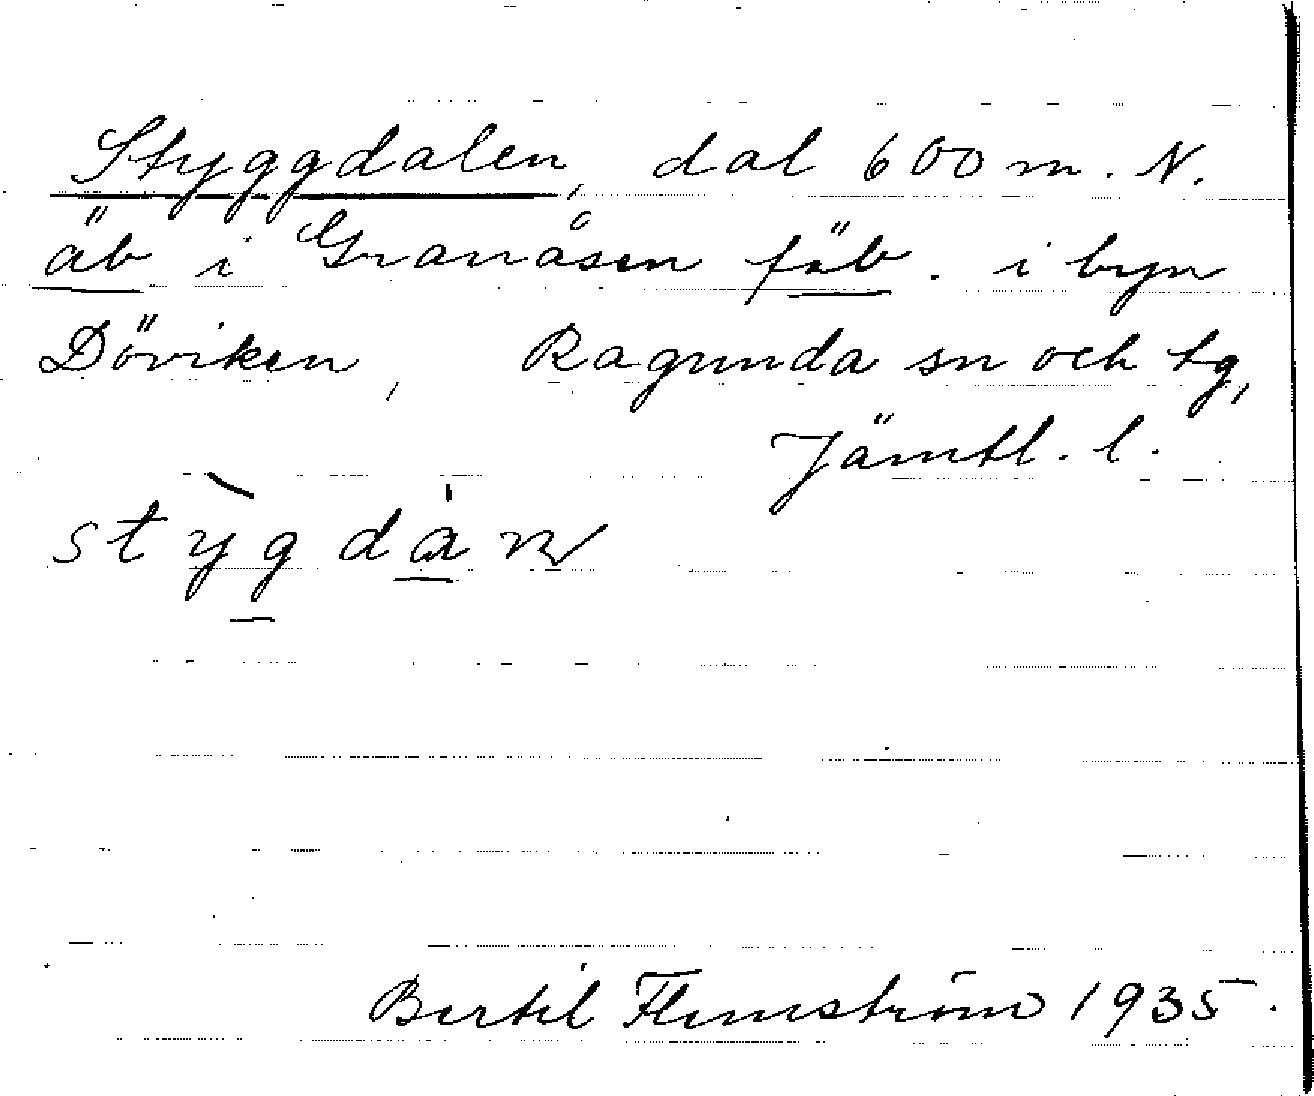 Styggdalen, dal 600 m. N.
äb i Granåsen fäb. i byn
Döviken, Ragunda sn och tg,
Jämtl. l.
stỳgdàn
Bertil Flemström 1935.